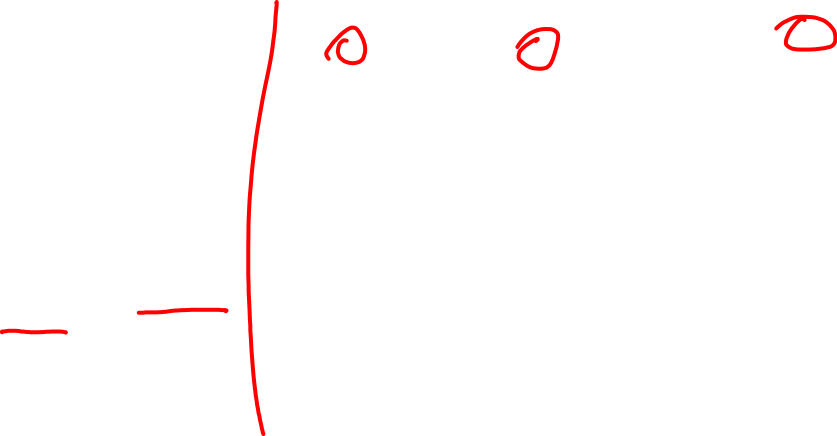 0 0 0
- -